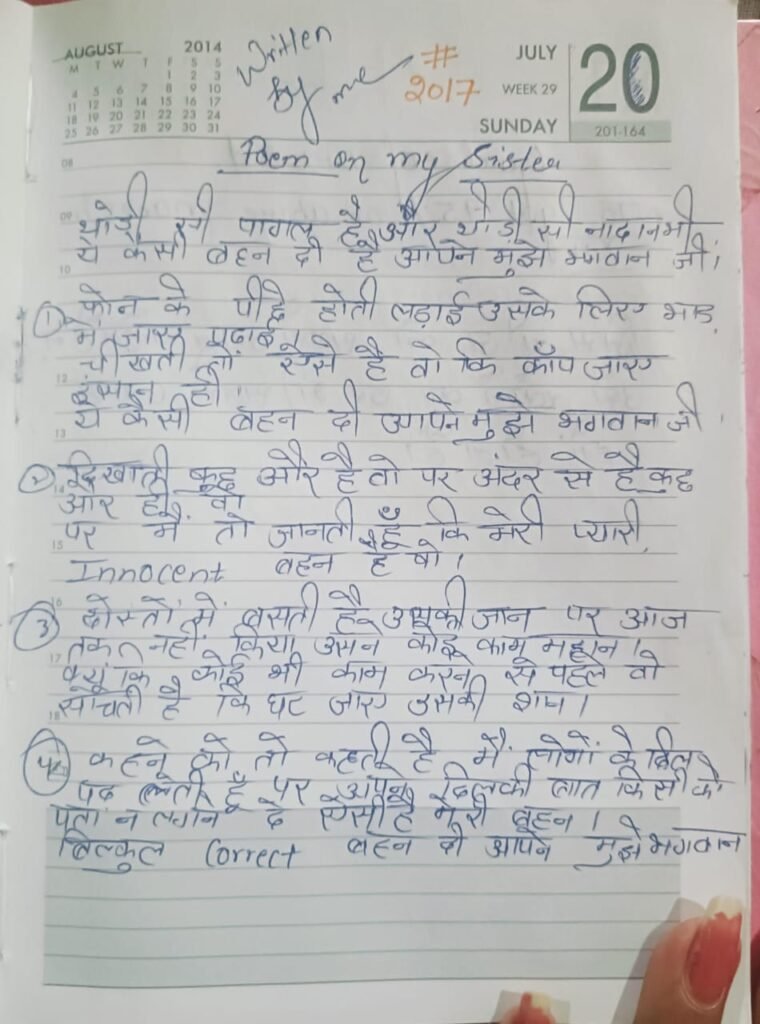 AUGUST 2014
M T W T F S S
1 2 3
4 5 6 7 8 9 10
11 12 13 14 15 16 17
18 19 20 21 22 23 24
25 26 27 28 29 30 31
Written
By me
#
2017
JULY
WEEK 29
SUNDAY
20
201-164
Poem on my Sister
08
09
थोड़ी सी पागल है और थोड़ी सी नादान भी
ये कैसी बहन दी है आपने मुझे भगवान जी।
10
① फोन के पीछे होती लड़ाई उसके लिए भाड़
में जाए पढ़ाई।
चीखती तो ऐसे है वो कि काँप जाए
12
इंसान ही।
ये कैसी बहन दी आपने मुझे भगवान जी
13
② दिखाती कुछ और है वो पर अंदर से है कुछ
14
और ही वो
पर मैं तो जानती हूँ कि मेरी प्यारी
15
Innocent बहन है वो।
16
③ दोस्तों में बसती है उसकी जान पर आज
तक नहीं किया उसने कोई काम महान।
17
क्यूंकि कोई भी काम करने से पहले वो
सोचती है कि घट जाए उसकी शान।
18
④ कहने को तो कहती है मैं लोगों के दिल
पढ़ लेती हूँ पर अपने दिल की बात किसी को
पता न लगने दे ऐसी है मेरी बहन।
बिल्कुल Correct बहन दी आपने मुझे भगवान